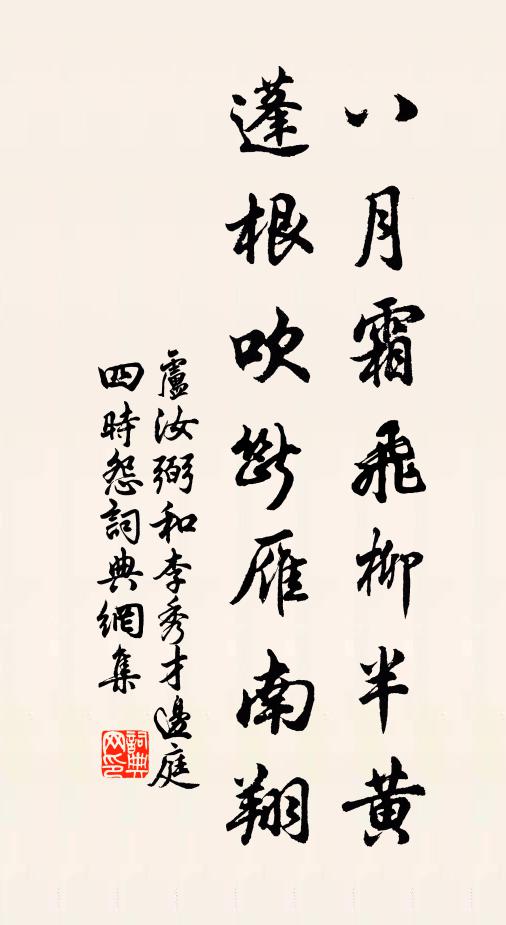 八月霜飛柳半黃
蓬根吹斷雁南翔
盧汝弼和李秀才邊庭
四時怨詞典網集
詞典網印